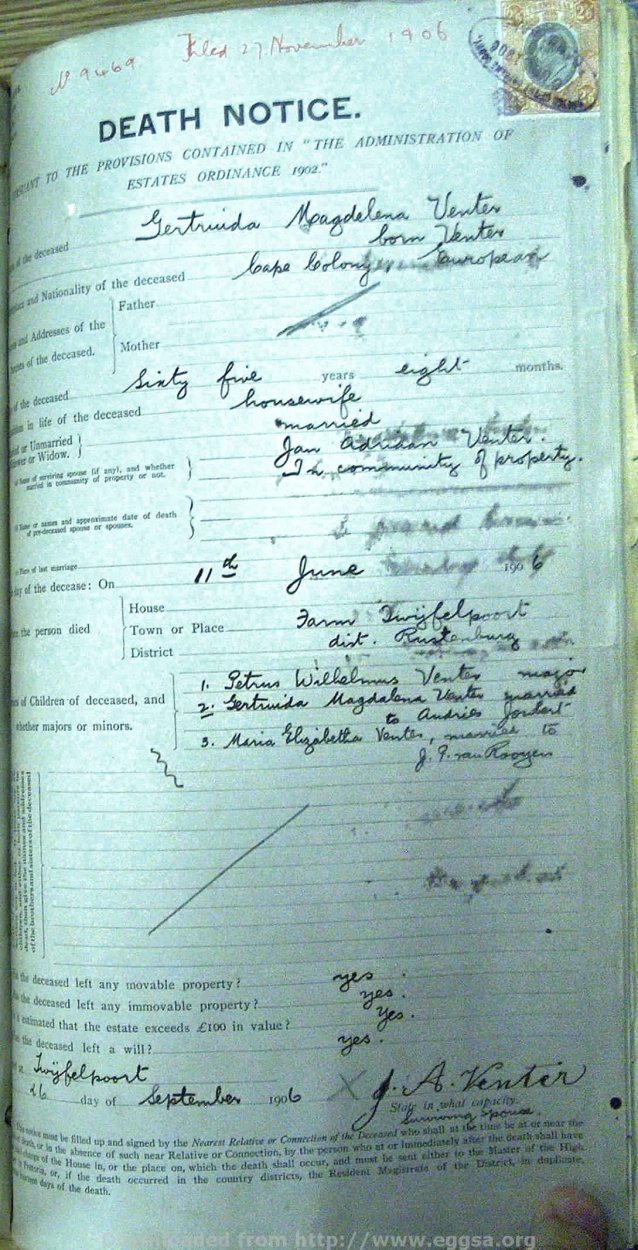 No 9469 Filed 27 November 1906
DEATH NOTICE.
TO THE PROVISIONS CONTAINED IN "THE ADMINISTRATION OF
ESTATES ORDINANCE 1902."
of the deceased Gertruida Magdelena Venter
born Venter
and Nationality of the deceased Cape Colony, European
and Addresses of the
of the deceased.
Father
Mother
of the deceased Sixty five years eight months.
in life of the deceased housewife
or Unmarried
or Widow.
married
Name of surviving spouse (if any), and whether
married in community of property or not.
Jan Adriaan Venter.
In community of property.
Name or names and approximate date of death
of pre-deceased spouse or spouses.
Place of last marriage
of the decease: On 11th June 1906
the person died
House
Town or Place Farm Twijfelpoort
District dist. Rustenburg
of Children of deceased, and
whether majors or minors.
1. Petrus Wilhelmus Venter major
2. Gertruida Magdalena Venter married
to Andries Joubert
3. Maria Elizabetha Venter, married to
J. P. van Rooyen
death, then give the names and addresses
of the brothers and sisters of the deceased
the deceased left any movable property? yes.
the deceased left any immovable property? yes.
estimated that the estate exceeds £100 in value? Yes.
the deceased left a will? yes.
Twijfelpoort
26 day of September 1906 X J. A. Venter
State in what capacity.
Surviving Spouse.
notice must be filled up and signed by the Nearest Relative or Connection of the Deceased who shall at the time be at or near the
death, or in the absence of such near Relative or Connection, by the person who at or immediately after the death shall have
charge of the House in, or the place on, which the death shall occur, and must be sent either to the Master of the High
Pretoria, or, if the death occurred in the country districts, the Resident Magistrate of the District, in duplicate,
days of the death.
Downloaded from http://www.eggsa.org